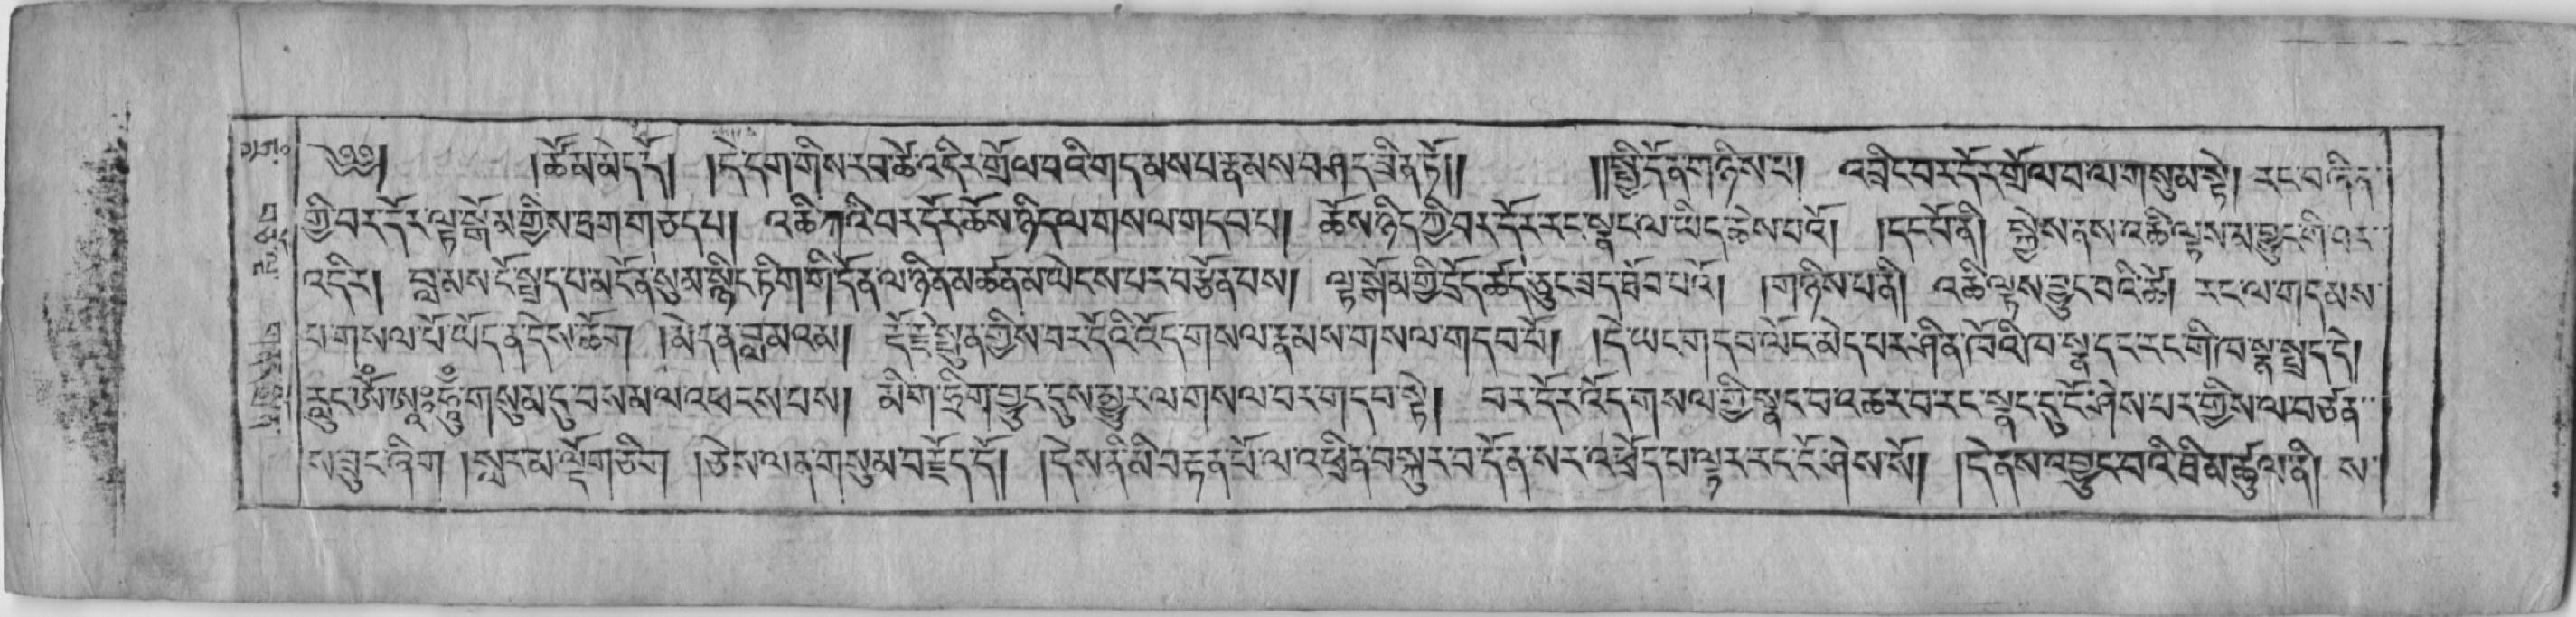 ༄༅། །ཚོམ་མེད་དོ། །དེ་དག་གིས་རབ་ཚེ་འདིར་གྲོལ་བའི་གདམས་པ་རྣམས་བཤད་ཟིན་ཏོ།། །།སྤྱི་དོན་གཉིས་པ། འབྲིང་བར་དོར་གྲོལ་བ་ལ་གསུམ་སྟེ། རང་བཞིན་
གྱི་བར་དོར་ལྟ་སྒོམ་གྱིས་ཐག་གཅད་པ། འཆི་ཀའི་བར་དོར་ཆོས་ཉིད་ལ་གསལ་གདབ་པ། ཆོས་ཉིད་ཀྱི་བར་དོར་རང་སྣང་ལ་ཡིད་ཆེས་པའོ། །དང་པོ་ནི། སྐྱེས་ནས་འཆི་ལྟས་མ་བྱུང་གི་བར་
འདིར། བླ་མས་ངོ་སྤྲད་པ་མངོན་སུམ་སྙིང་ཏིག་གི་དོན་ལ་ཉིན་མཚན་མ་ཡེངས་པར་བརྩོན་པས། ལྟ་སྒོམ་གྱི་དྲོད་ཚད་ཅུང་ཟད་ཐོབ་པའོ། །གཉིས་པ་ནི། འཆི་ལྟས་བྱུང་བའི་ཚེ། རང་ལ་གདམས་
པ་གསལ་པོ་ཡོད་ན་དེས་ཆོག །མེད་ན་བླ་མའམ། རྡོ་རྗེ་སྤུན་གྱིས་བར་དོའི་འོད་གསལ་རྣམས་གསལ་གདབ་བོ། །དེ་ཡང་གདབ་ལོང་མེད་པར་ཤིན་ཁོའི་ཁ་སྣ་དང་རང་གི་ཁ་སྣ་སྤྲད་དེ།
རླུང་ཨོཾ་ཨཱཿཧཱུྃ་གསུམ་དུ་བསམ་ལ་འཕངས་པས། མིག་ཧྲིག་བྱུང་དུས་མྱུར་ལ་གསལ་བར་གདབ་སྟེ། བར་དོར་འོད་གསལ་གྱི་སྣང་བ་འཆར་བ་རང་སྣང་དུ་ངོ་ཤེས་པར་གྱིས་ལ་བཙན་
ས་ཟུང་ཞིག །སླར་མ་ལྡོག་ཅིག །ཅེས་ལན་གསུམ་བརྗོད་དོ། །དེས་ནི་མི་བརྟན་པོ་ལ་འཕྲིན་བསྐུར་བ་དོན་སར་འཕྲོད་པ་ལྟར་རང་ངོ་ཤེས་སོ། །དེ་ནས་འབྱུང་བའི་ཐིམ་ཚུལ་ནི། ས་